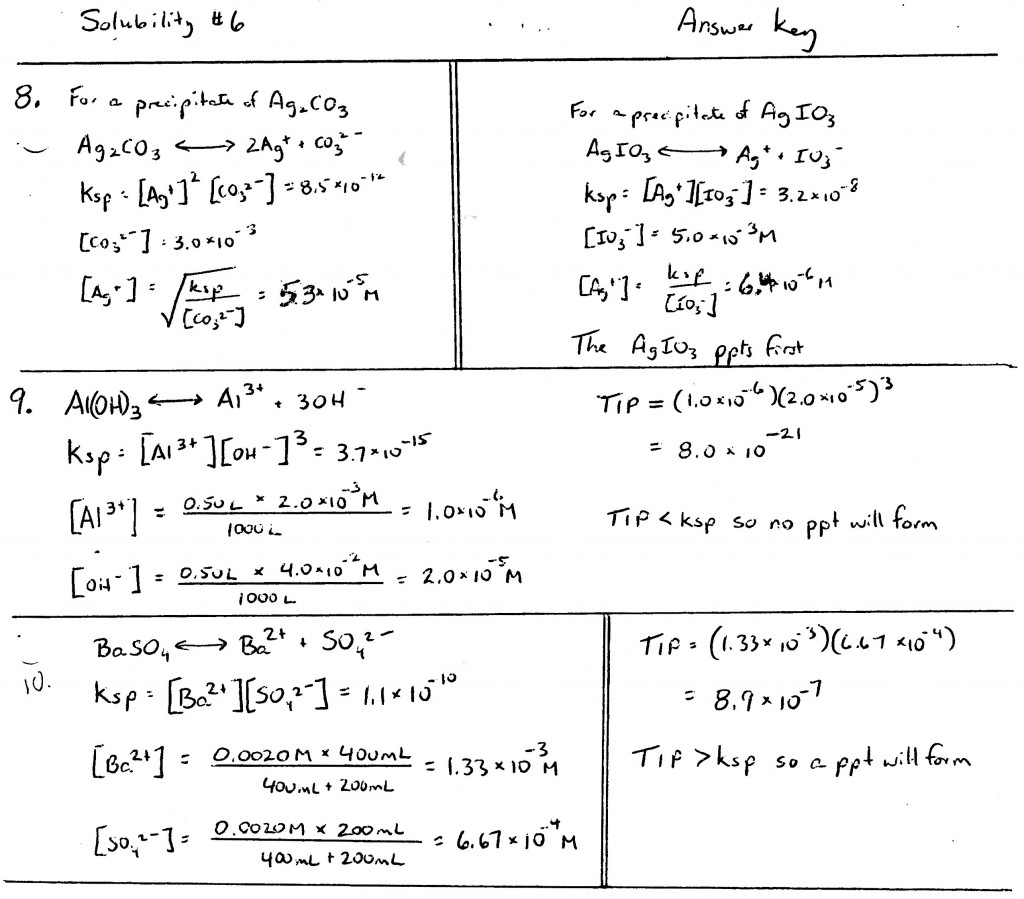 Solubility #6
Answer key
8. For a precipitate of Ag₂CO₃
Ag₂CO₃ ⟷ 2Ag⁺ + CO₃²⁻
Ksp = [Ag⁺]² [CO₃²⁻] = 8.5×10⁻¹²
[CO₃²⁻] = 3.0×10⁻³
[Ag⁺] = √(ksp / [CO₃²⁻]) = 5.3×10⁻⁵ M
For a precipitate of AgIO₃
AgIO₃ ⟷ Ag⁺ + IO₃⁻
ksp = [Ag⁺][IO₃⁻] = 3.2×10⁻⁸
[IO₃⁻] = 5.0×10⁻³ M
[Ag⁺] = ksp / [IO₃⁻] = 6.4×10⁻⁶ M
The AgIO₃ ppts first
9. Al(OH)₃ ⟷ Al³⁺ + 3OH⁻
Ksp = [Al³⁺][OH⁻]³ = 3.7×10⁻¹⁵
[Al³⁺] = 0.50L × 2.0×10⁻³ M / 1000L = 1.0×10⁻⁶ M
[OH⁻] = 0.50L × 4.0×10⁻² M / 1000L = 2.0×10⁻⁵ M
TIP = (1.0×10⁻⁶)(2.0×10⁻⁵)³
= 8.0×10⁻²¹
TIP < ksp so no ppt will form
10. BaSO₄ ⟷ Ba²⁺ + SO₄²⁻
Ksp = [Ba²⁺][SO₄²⁻] = 1.1×10⁻¹⁰
[Ba²⁺] = 0.0020M × 400mL / 400mL + 200mL = 1.33×10⁻³ M
[SO₄²⁻] = 0.0020M × 200mL / 400mL + 200mL = 6.67×10⁻⁴ M
TIP = (1.33×10⁻³)(6.67×10⁻⁴)
= 8.9×10⁻⁷
TIP > ksp so a ppt will form